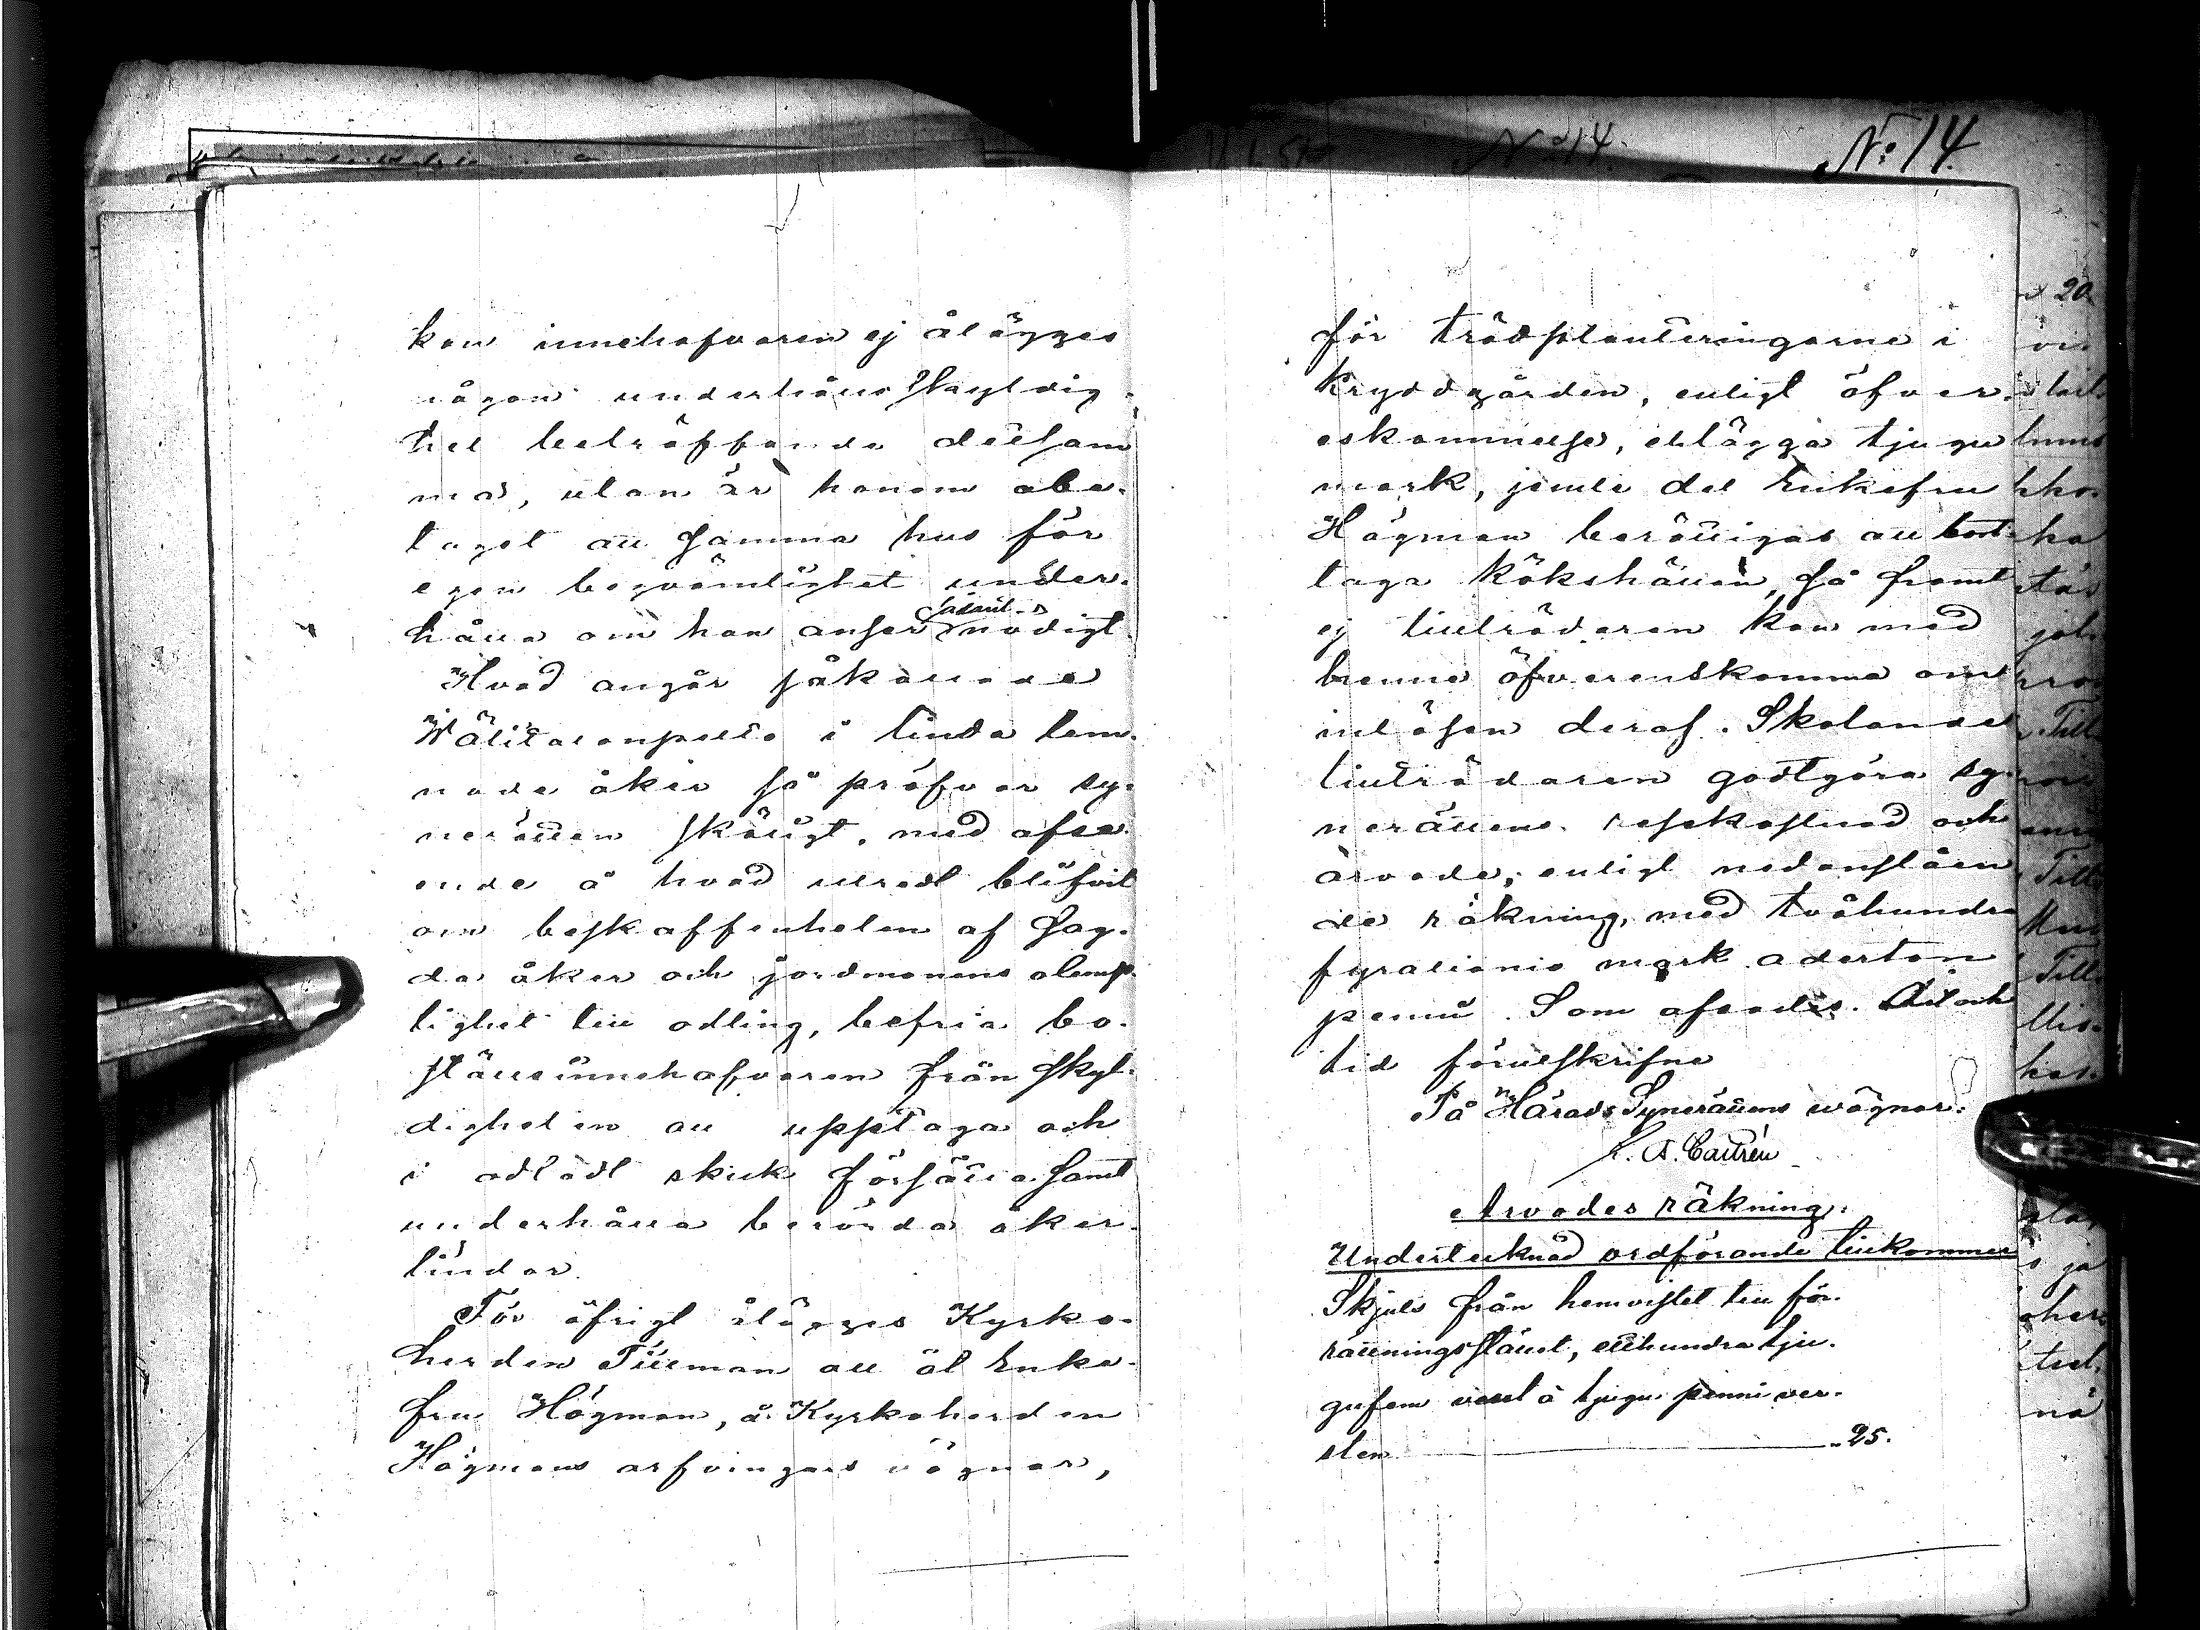 No 14.
No 14.
kan innehafvaren ej åläggas
någon underhålls skyldig-
het beträffande desam
ma, utan är honom obe-
taget att samma hus för
egen beqvämlighet under-
hålla om han anser sådant nödigt
Hvad angår påkallade
Wälitalonpelto i linda lem-
nade åker så pröfvar sy-
nerätten skäligt, med afse-
ende å hvad utredt blifvit
om beskaffenheten af sag-
da åker och jordmonens olämp-
lighet till odling, befria bo-
ställsinnehafvaren från skyl-
digheten att upptaga och
i odladt skick försätta samt
underhålla berörda åker-
lindor.
För öfrigt ålägges Kyrko-
herden Tillman att åt Enke-
fru Högman, å Kyrkoherden
Högmans arfvingars vägnar,
för trädplanteringarne i
Kryddgården, enligt öfver-
enskommelse, erlägga tjugu
mark, jemte det Enkefru
Högman berättigas att bort-
taga kökshällen, så framt
ej tillträdaren kan med
henne öfverenskomma om
inlösen deraf. Skolande
tillträdaren godtgöra sy-
nerättens resekostnad och
arvode, enligt nedanståen
de räkning, med tvåhundra
fyrationio mark aderton
penni. Som afsades. År och
tid förutskrifne
På Härads Synerättens wägnar:
K. A. Castrén
Arvodes räkning:
Undertecknad ordförande tillkommer
Skjuts från hemvistet till för-
rättningsstället, etthundra tju-
gufem verst à tjugu penni ver-
sten 25.